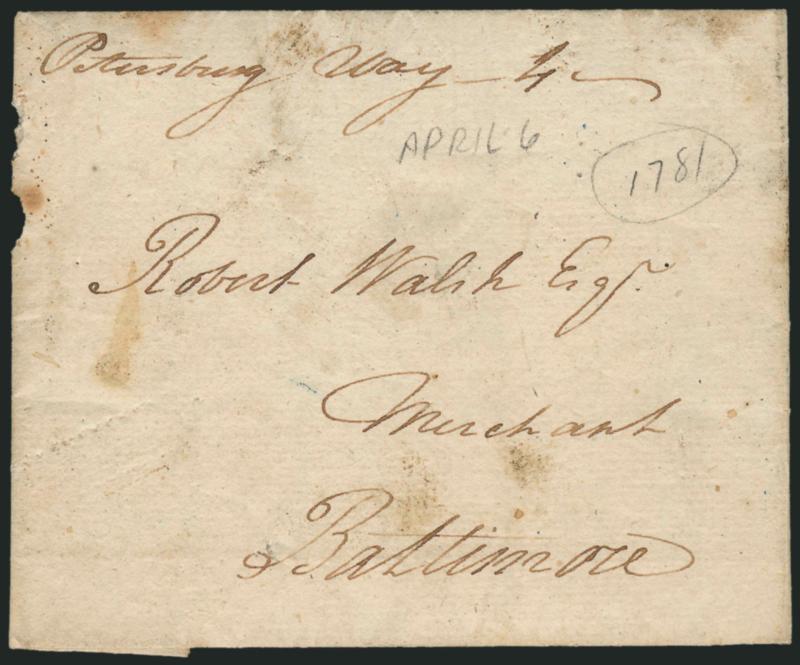 Petersburg Way 4
APRIL 6
1781
Robert Walsh Esqr.
Merchant
Baltimore